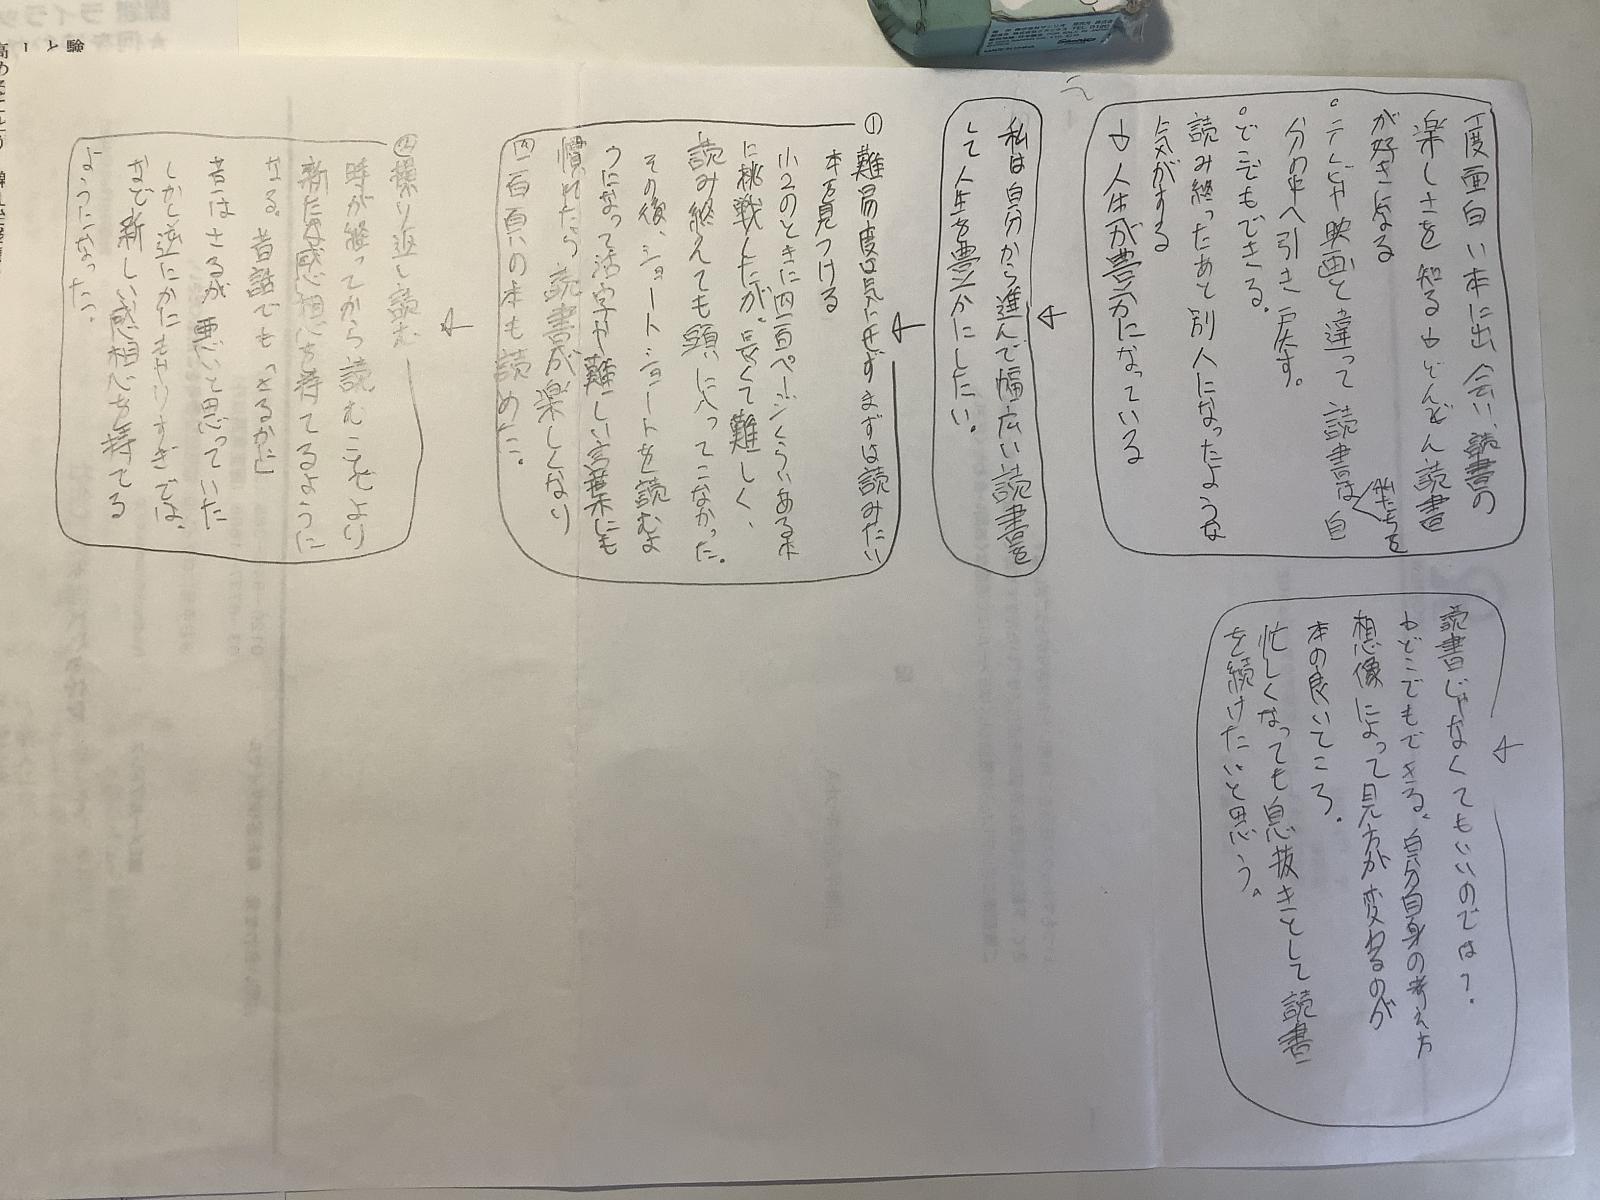 一度面白い本に出会い、読書の
楽しさを知る→どんどん読書
が好きになる
。テレビや映画と違って読書は自
私たちを
分の中へ引き戻す。
。どこでもできる。
読み終ったあと別人になったような
気がする
→人生が豊かになっている
私は自分から進んで幅広い読書を
して人生を豊かにしたい。
① 難易度は気にせずまずは読みたい
本を見つける
小2のときに四百ページくらいある本
に挑戦したが、長くて難しく、
読み終えても頭に入ってこなかった。
その後、ショートショートを読むよ
うになって活字や難しい言葉にも
慣れたら読書が楽しくなり
四百頁の本も読めた。
②繰り返し読む
時が経ってから読むことでより
新たな感想を持てるように
なる。昔話でも「さるかに」
昔はさるが悪いと思っていた
しかし逆にかにもやりすぎでは、
など新しい感想を持てる
ようになった。
読書じゃなくてもいいのでは?
→どこでもできる。自分自身の考え方
想像によって見方が変わるのが
本の良いところ。
忙しくなっても息抜きとして読書
を続けたいと思う。